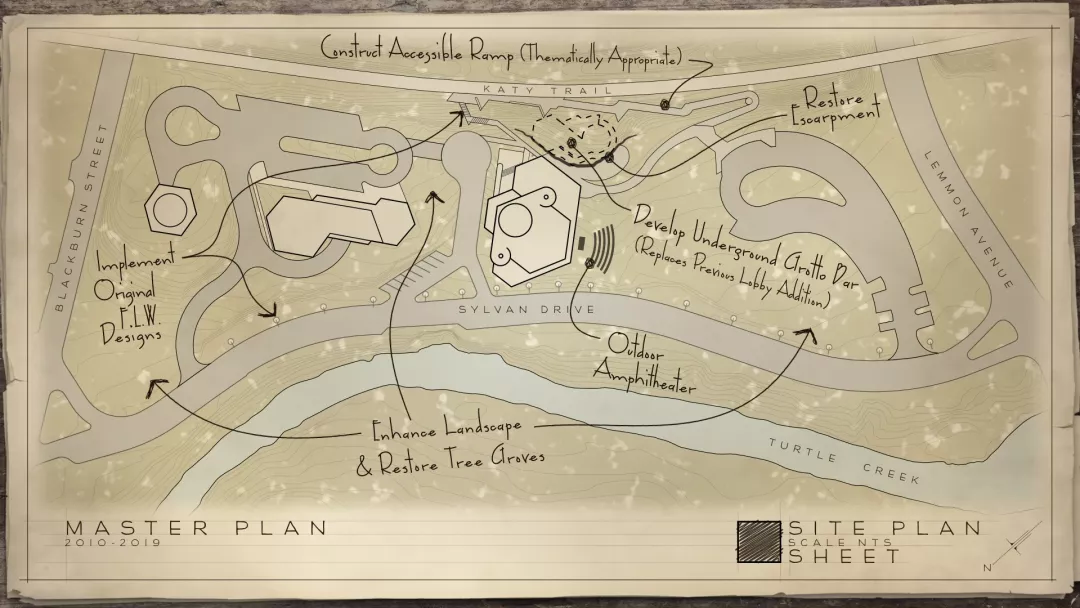 Construct Accessible Ramp (Thematically Appropriate)
KATY TRAIL
Restore
Escarpment
BLACKBURN STREET
LEMMON AVENUE
Develop Underground Grotto Bar
(Replaces Previous Lobby Addition)
Implement
Original
F.L.W.
Designs
SYLVAN DRIVE
Outdoor
Amphitheater
Enhance Landscape
& Restore Tree Groves
TURTLE CREEK
MASTER PLAN
2010-2019
SITE PLAN
SCALE NTS
SHEET
N